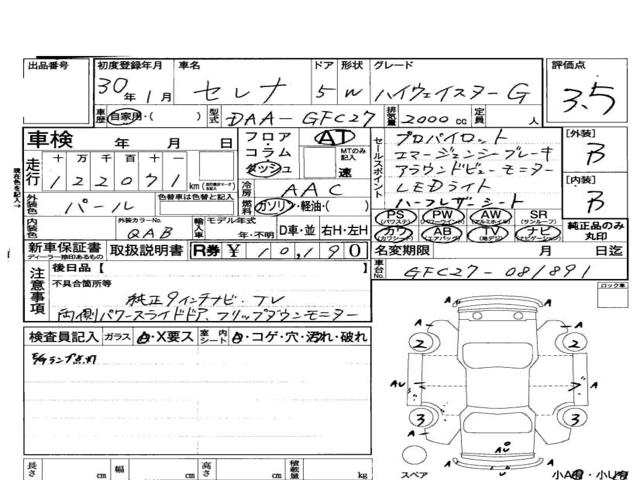 出品番号 初度登録年月 車名 ドア 形状 グレード 評価点
30年1月 セレナ 5 W ハイウェイスターG 3.5
車歴 自家用・( ) 型式 DAA-GFC27 排気量 2000cc 定員 人
車検 年 月 日 フロア・コラム・ダッシュ AT MTのみ記入 速
セールスポイント プロパイロット
エマージェンシーブレーキ
アラウンドビューモニター
LEDライト
ハーフレザーシート
[外装] B
[内装] B
現在色を記入→
走行 十万千百十一
122071 km
冷房 AAC
外装色 パール 色替車は色替と記入 燃料 ガソリン・軽油・( )
内装色 外装カラーNo. QAB 輸入車 モデル年式 年・不明 D車・並 右H・左H
PS (パワステ) PW (パワーウインド) AW (アルミホイル) SR (サンルーフ)
カワ (カワシート) AB (エアバッグ) TV (地デジ) ナビ (ナビゲーション)
純正品のみ丸印
新車保証書 ディーラー捺印あるもの 取扱説明書 R券 ¥10,190 名変期限 月 日迄
車台No. GFC27-081891
注意事項 後日品【 】
不具合箇所等
純正9インチナビ.TV
両側パワースライドドア.フリップダウンモニター
ロック車
検査員記入 ガラス ・X要ス 室内シート ・コゲ・穴・汚れ・破れ
ランプ点灯
A A
2 2
A AU A A
3 3
A A
AU
U
スペア
長さ cm 幅 cm 高さ cm 積載量 kg